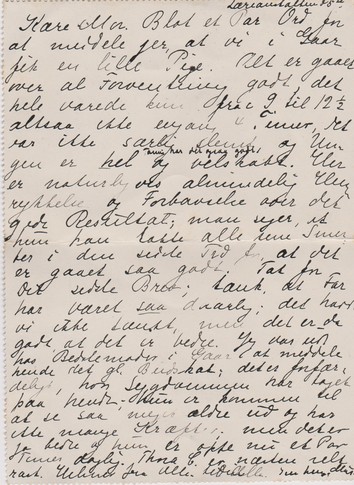 Kære Mor. Blot et Par Ord for
at meddele jer, at vi i Gaar
fik en lille Pige. Det er gaaet
over al Forventning godt, det
hele varede kun fra 9 til 12½
altsaa ikke engang 4 Timer, det
var ikke særlig slemt og Un-
gen er hel og velskabt. Her
er naturligvis almindelig Hen-
rykkelse og Forbavselse over det
gode Resultat; man siger, at
hun kan takke alle sine Smer-
ter i den sidste Tid for, at det
er gaaet saa godt. Tak for
Dit sidste Brev; tænk, at Far
har været saa daarlig; det havde
vi ikke tænkt, men det er da
godt at det er bedre. Jeg var ud
hos Bedstemoder i Gaar at meddele
hende det gl. Budskab; det er forfær-
deligt, hvor Sygdommen har taget
paa hende. Hun er kommen til
at se saa meget ældre ud og har
ikke mange Kræfter, men det er
jo bedre og hun er oppe nu et Par
Timer daglig. er næsten helt
rask. Hilsen fra Alle